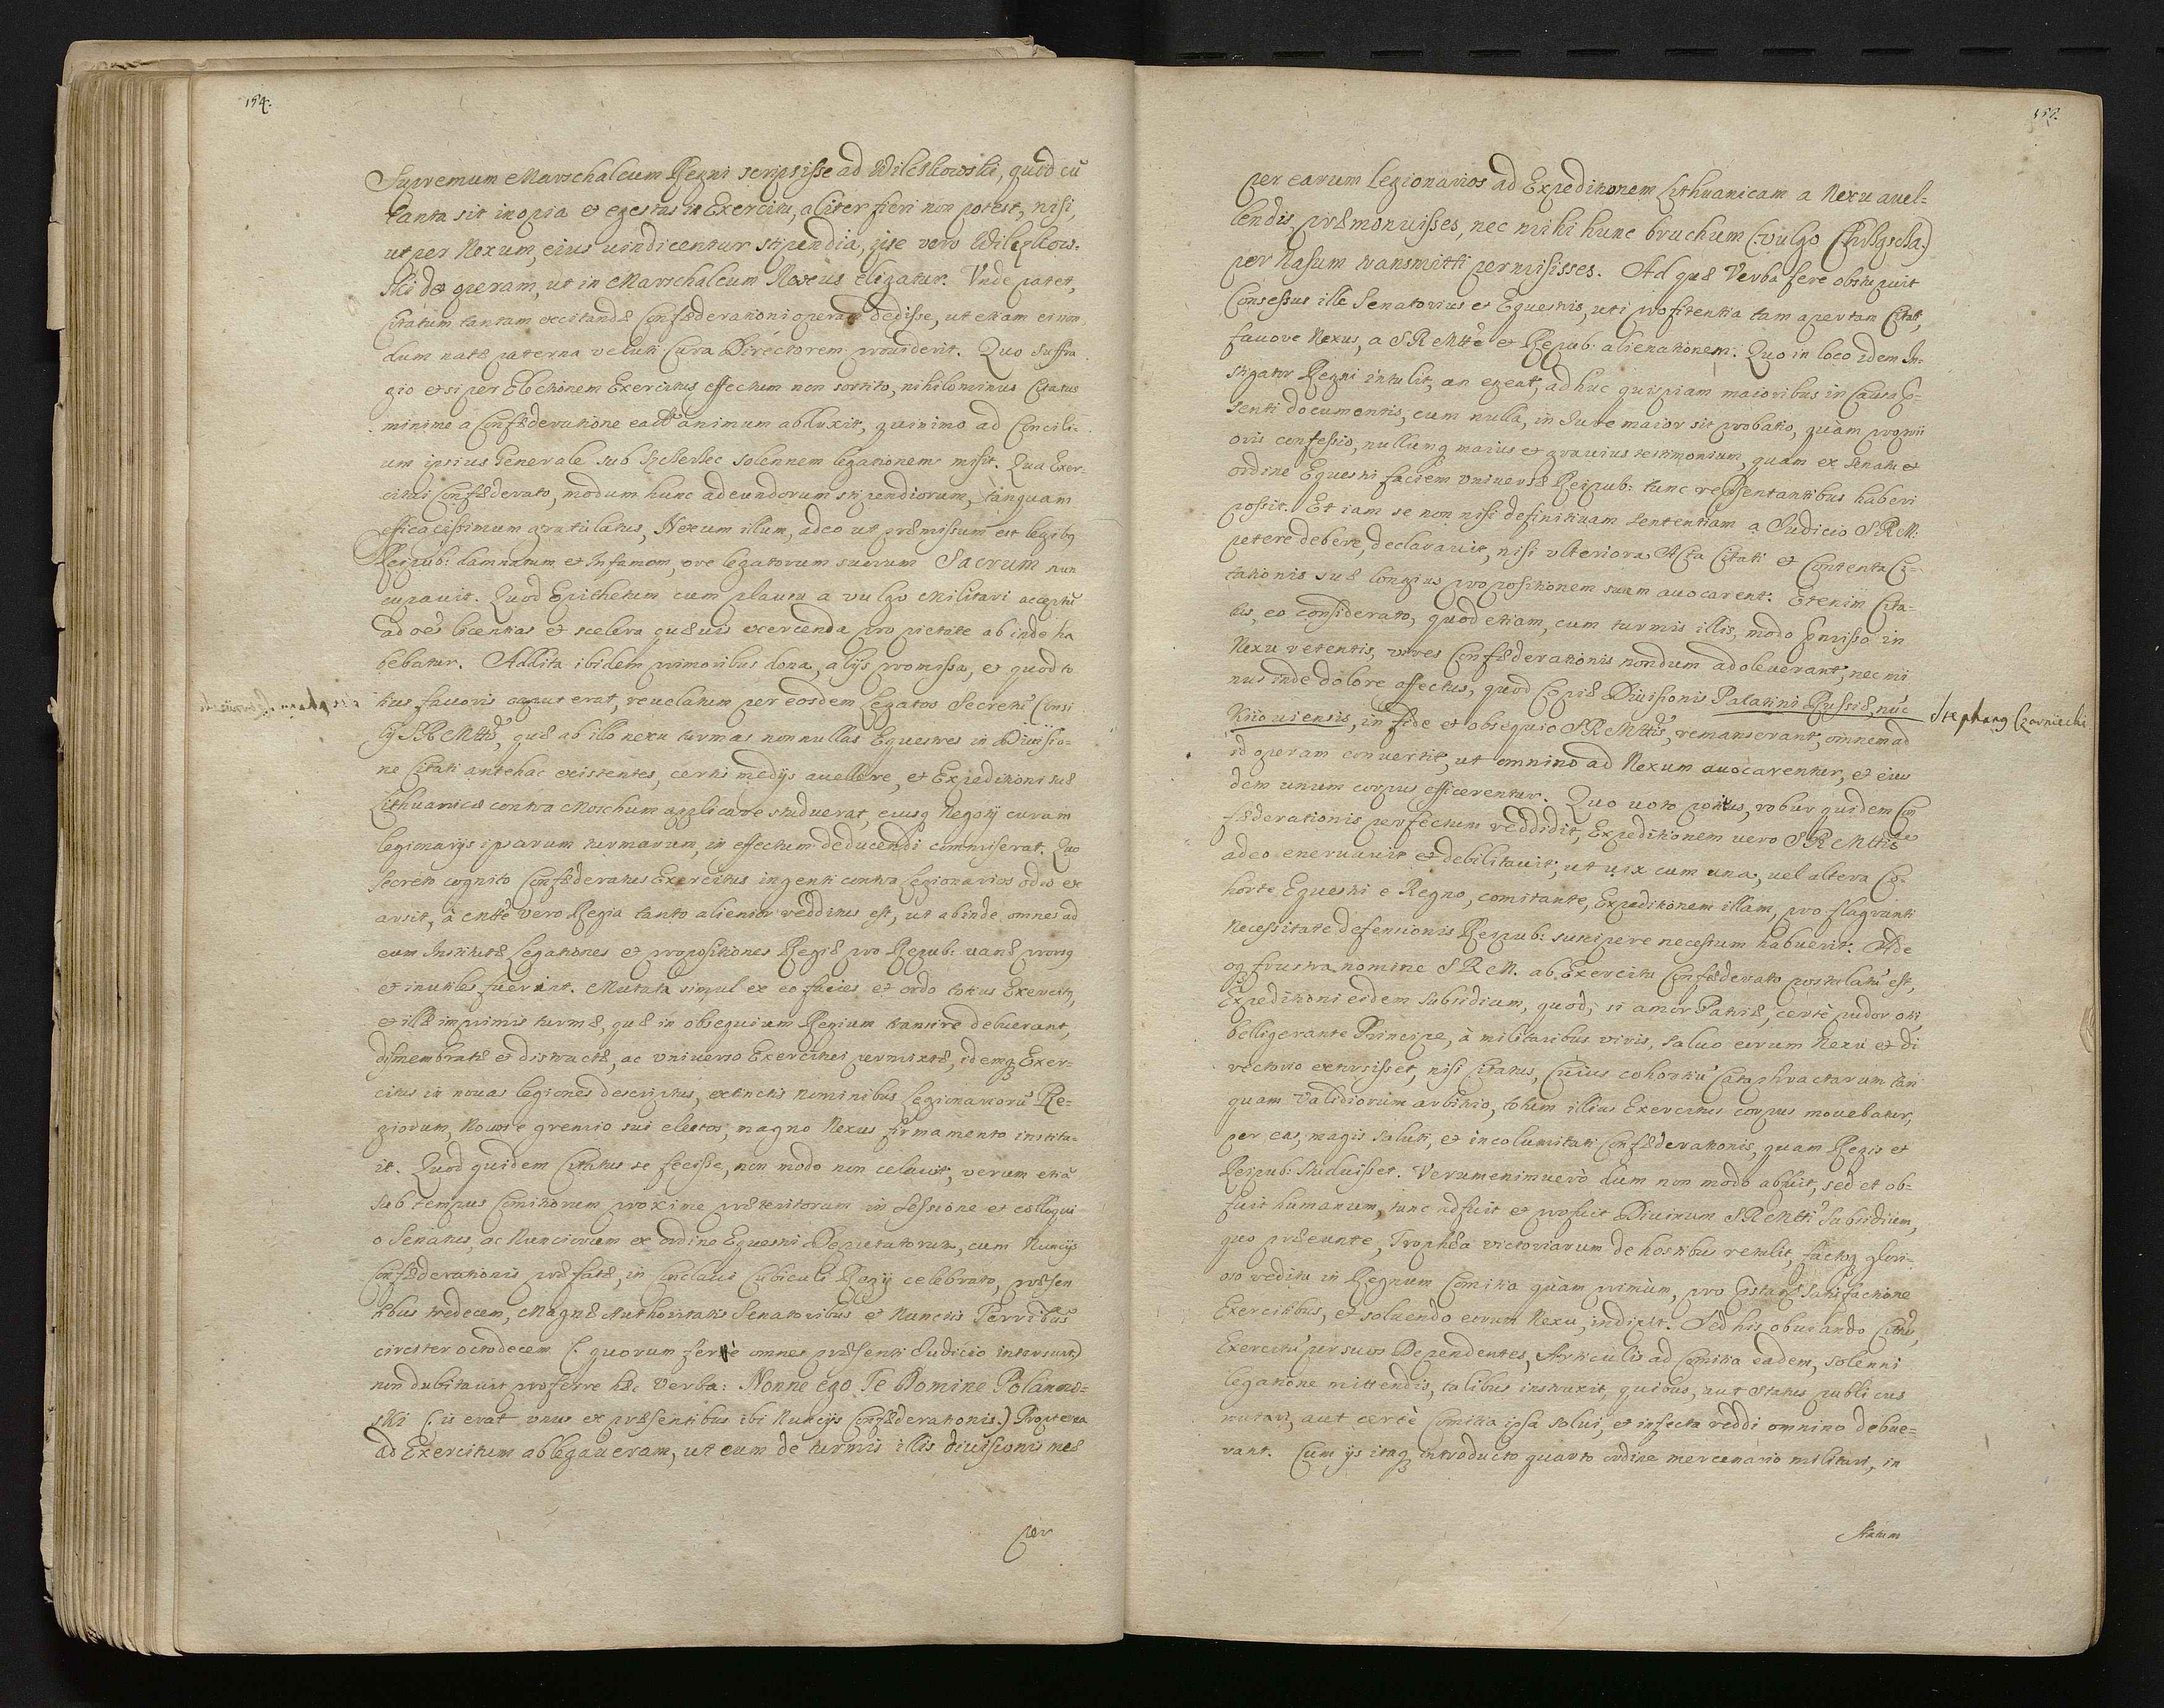 154.
Supremum Marschalcum Regni scripsisse ad Wilczkowski, quod cũ
tanta sit inopia et egestas in Exercitu, aliter fieri non potest, nisi,
ut per Nexum, eius uindicentur stipendia, ipse vero Wilczkow-
ski det operam, ut in Marschalcum Nexus eligatur. Vnde patet,
Citatum tantam excitandæ Confæderationi operam dedisse, ut etiam ei non
dum natæ paterna veluti Cura Directorem prouiderit. Quo suffra
gio etsi per Electionem Exercitus effectum non sortito, nihilominus Citatus
minime a Confæderatione ea animum abduxit, quinimo ad Concili-
um ipsius Generale sub solennem legationem misit. Qua Exer-
citui Confæderato, modum hunc adeundorum stipendiorum, tanquam
efficacissimum gratulatus, Nexum illum, adeo ut præmissum est legibq
Reipub: damnatum et Infamem, ore legatorum suorum Sacrum nun
cupauit. Quod Epithetum cum plausu a vulgo Militari acceptũ
ad oẽs licentias et scelera quæuis exercenda pro pietate ab inde ha
bebatur. Addita ibidem primoribus dona, alijs promissa, et quod to
tius fauoris caput erat, reuelatum per eosdem Legatos Secretũ Consi
lij SRMttis, quæ ab illo nexu turmas nonnullas Equestres in Diuisio-
ne Citati antehac existentes, certis medijs auellere, et Expeditioni suæ
Lithuanicæ contra Moschum applicare studuerat, eiusq Negotij curam
legionarijs ipsarum turmarum, in effectum deducendi commiserat. Quo
secreto cognito Confæderatus Exercitus ingenti contra Legionarios odio ex
arsit, à Mtte vero Regia tanto alienior redditus est, ut abinde omnes ad
eum Institutæ Legationes et propositiones Regiæ pro Repub: uanæ prorsq
et inutiles fuerint. Mutata simul ex eo facies et ordo totius Exercitq,
et illæ imprimis turmæ, quæ in obsequium Regium transire debuerant,
dismembratæ et distractæ, ac vniuerso Exercitui permixtæ, idemq Exer-
citus in nouas legiones descriptus, extinctis nominibus Legionariorũ Re-
giorum, Nouos e gremio sui electos, magno Nexus firmamento institu-
it. Quod quidem Citatus se fecisse, non modo non celauit, verum etiã
sub tempus Comitiorum proxime præteritorum in sessione et colloqui
o Senatus, ac Nunciorum ex ordine Equestri Deputatorum, cum Nuncijs
Confæderationis præfatæ, in Conclaui Cubiculi Regij celebrato, præsen
tibus tredecem, Magnæ Authoritatis Senatoribus et Nuncijs Terribus
circiter octodecem (: quorum ferè omnes præsenti Iudicio intersunt:)
non dubitauit proferre hæc verba: Nonne ego Te Domine Polanow-
ski (: is erat vnus ex præsentibus ibi Nuncijs Confæderationis.) Propterea
ad Exercitum ablegaueram, ut eum de turmis illis diuisionis meæ
per
155.
per earum Legionarios ad Expeditionem Lithuanicam a Nexu auel-
lendis, præmonuisses, nec mihi hunc bruchum (:vulgo Chrhąscha:)
per Nasum transmitti permisisses. Ad quæ Verba fere obstupuit
Consessus ille Senatorius et Equestris, uti profitentia tam apertam Citati,
fauore Nexus, a SRMtte et Repub: alienationem. Quo in loco idem In-
stigator Regni intulit, an egeat, adhuc quispiam maioribus in Causa p̃-
senti documentis, cum nulla, in Iure maior sit probatio, quàm proprii
oris confessio, nullumq maius et grauius testimonium, quam ex Senatu et
ordine Equestri faciem vniuersæ Reipub: tunc rep̃sentantibus haberi
possit. Et iam se non nisi definitiuam sententiam a Iudicio SRM:
petere debere, declarauit, nisi vlteriora Acta Citati et Contenta Ci-
tationis suæ longius propositionem suam auocarent. Etenim Cita-
tus, eo considerato, quod etiam, cum turmis illis, modo p̃misso in
Nexu retentis, vires Confæderationis nondum adoleuerant, nec mi
nus inde dolore affectus, quod Copiæ Diuisionis Palatini Russiæ, nũc
Kiiouiensis, in fide et obsequio SRMttis, remanserant, omnem ad
Stephanq Czarniecki
id operam conuertit, ut omnino ad Nexum auocarentur, et eius
dem unum corpus efficerentur. Quo uoto potitus, robur quidem Con
fæderationis perfectum reddidit, Expeditionem vero SRMttis
adeo eneruauit et debilitauit, ut uix cum una, uel altera Co-
horte Equestri e Regno, comitante, Expeditionem illam, pro flagranti
Necessitate defensionis Reipub: suscipere necessum habuerit. Ade
oq frustra nomine SRM. ab Exercitu Confæderato postulatũ est,
Expeditioni eidem subsidium, quod, si amor Patriæ, certè pudor oti,
belligerante Principe, à militaribus viris, saluo eorum Nexu et di
rectorio extorsisset, nisi Citatus, Cuius cohortiũ Cataphractarum tan
quam Validiorum arbitrio, totum illius Exercitus corpus mouebatur,
per eas, magis saluti, et incolumitati Confæderationis, quam Regis et
Reipub: studuisset. Verumenimuerò dum non modo abfuit, sed et ob-
fuit humanum, tunc adfuit et profuit Diuinum SRMtti Subsidium,
quo præeunte, Trophæa victoriarum de hostibus retulit, factoq glori-
oso reditu in Regnum Comitia quàm primùm, pro p̃standa satisfactione
Exercitibus, et soluendo eorum Nexu, indixit. Sed his obuiando Citus,
Exercitũ per suos Dependentes, Articulis ad Comitia eadem, solenni
legatione mittendis, talibus instruxit, quibus, aut Status publicus
mutari, aut certè Comitia ipsa solui, et infecta reddi omnino debue-
rant. Cum ijs itaq introducto quarto ordine mercenario militari, in
Statum